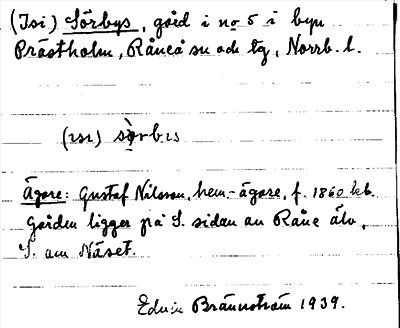 (Isi) Sörbys, gård i no 5 i byn
Prästholm, Råneå sn och tg, Norrb. l.
(ısı) sörbıs
Ägare: Gustaf Nilsson, hem.-ägare, f. 1860
Gården ligger på S. sidan av Råne älv,
S. om Näset.
Edvin Brännström 1939.